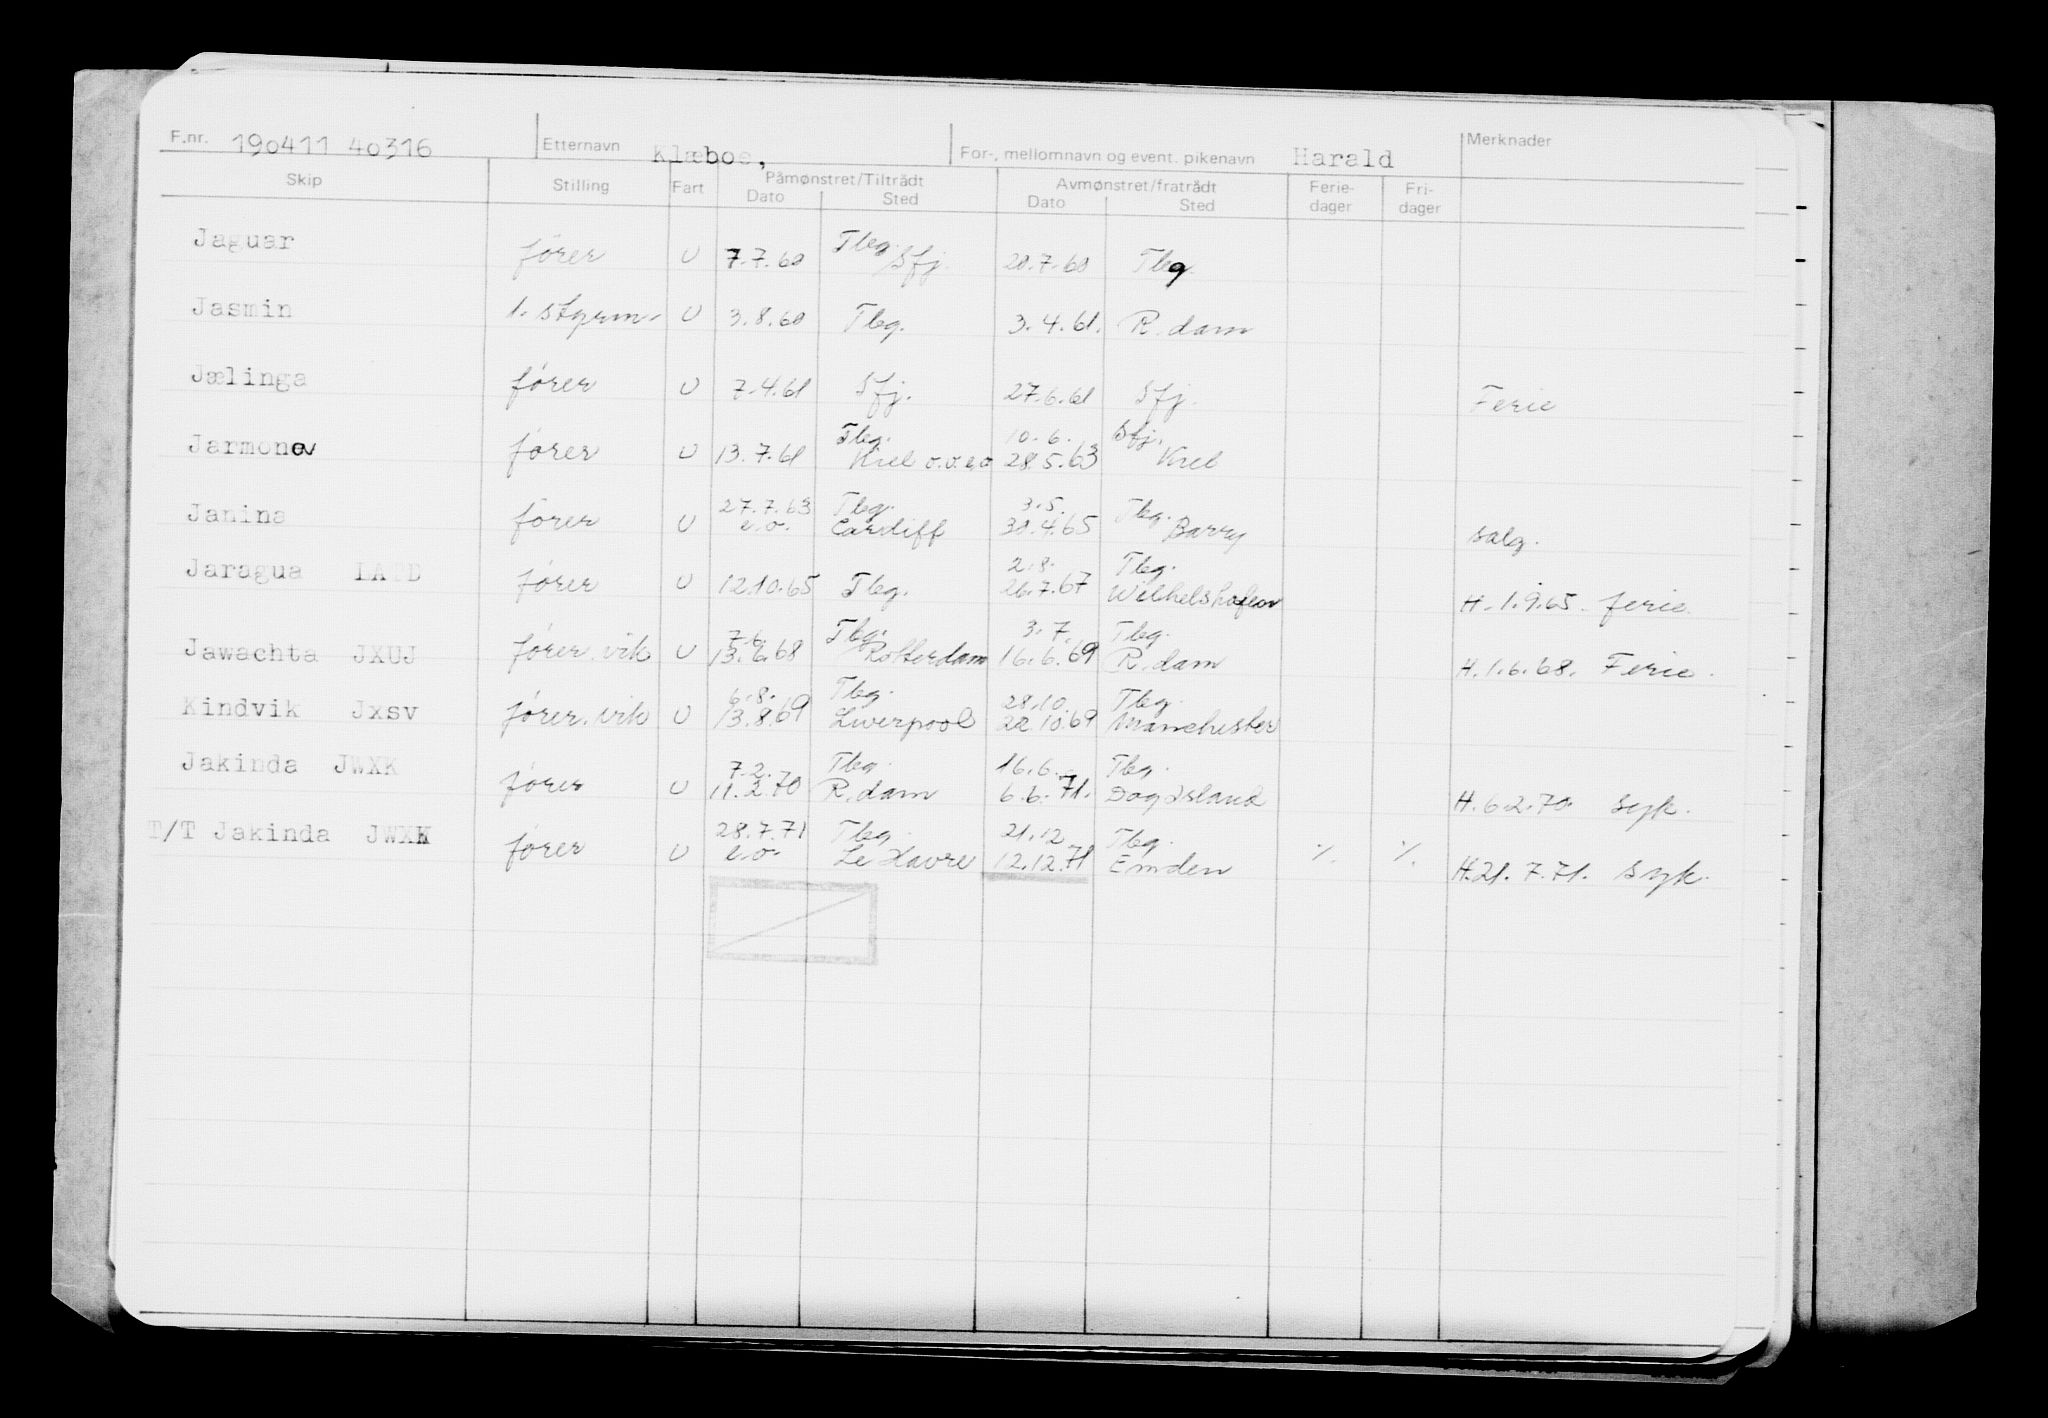 F.nr. 190411 40316 Etternavn Klæboe, For-, mellomnavn og event. pikenavn Harald Merknader
Skip Stilling Fart Påmønstret/Tiltrådt Avmønstret/fratrådt Ferie- Fri-
Dato Sted Dato Sted dager dager
Jaguar fører U 7.7.60 Tbg. Sfj. 20.7.60 Tbg.
Jasmin 1. styrm. U 3.8.60 Tbg. 3.4.61. R.dam
Jælinga fører U 7.4.61 Sfj. 27.6.61 Sfj. Ferie
Tbg. 10.6. Sfj.
Jarmona fører U 13.7.61 Kiel 28.5.63 Kiel
27.7.63 Tbg. 3.5. Tbg.
Janina fører U e.o. Cardiff 30.4.65 Barry salg.
2.8. Tbg.
Jaragua LATD fører U 12.10.65 Tbg. 26.7.67 Wilhelshafen H. 1.9.65. ferie.
7.6. Tbg. 3.7. Tbg.
Jawachta JXUJ fører.vik U 13.6.68 Rotterdam 16.6.69 R.dam H.1.6.68. Ferie.
6.8. Tbg. 28.10. Tbg.
Kindvik Jxsv fører.vik U 13.8.69 Liverpool 22.10.69 Manchester
7.2. Tbg. 16.6. Tbg.
Jakinda JWXK fører U 11.2.70 R.dam 6.6.71. Dog Island H.6.2.70. syk.
28.7.71 Tbg. 21.12 Tbg.
T/T Jakinda JWXK fører U e.o. Le Havre 12.12.71 Emden ٪. ٪. H.21.7.71. syk.